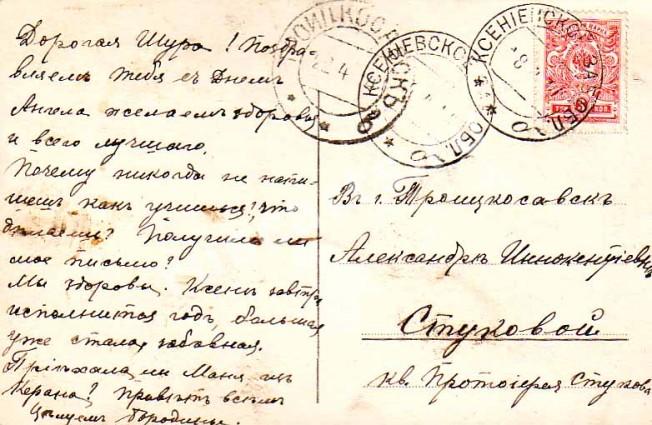 Дорогая Шура! Поздра-
вляем тебя съ Днемъ
Ангела желаемъ здоровья
и всего лучшаго.
Почему никогда не напи-
шешь какъ учишься, что
дѣлаешь? Получила ли
мое письмо?
Мы здоровы. Ксенѣ завтра
исполнится годъ, большая
уже стала забавная.
Пріѣхала ли Маня изъ
Керана? Привѣтъ всѣмъ
Цѣлуемъ Бородины.
КСЕНІЕВСКОЕ
КСЕНІЕВСКОЕ ОБЛ.
Въ г. Троицкосавскъ
Александрѣ Иннокентіевнѣ
Стуковой
кв. Протоіерея Стукова